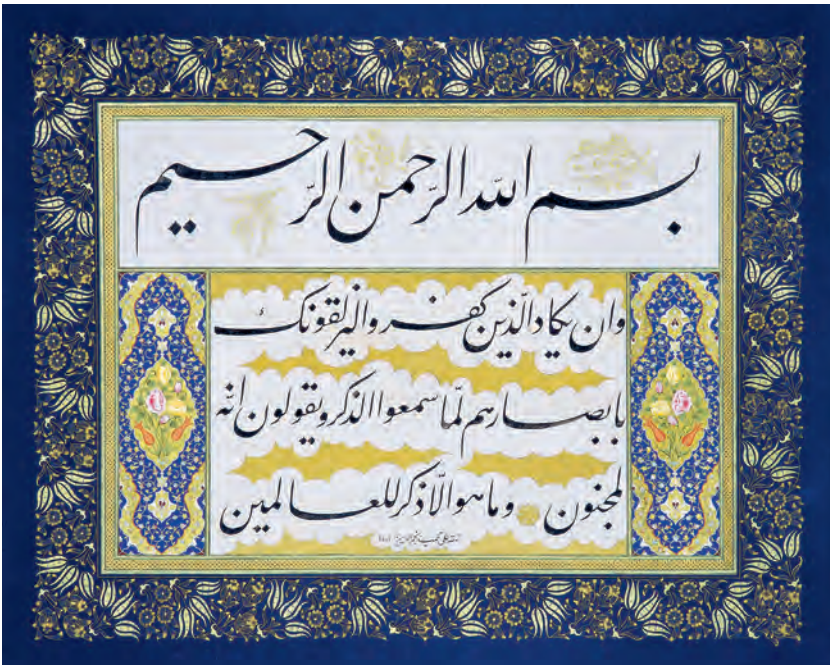 بسم الله الرّحمن الرّحیم
وان یکاد الّذین کفروا لیزلقونک
بابصارهم لمّا سمعوا الذکر ویقولون انّه
لمجنون وما هو الّا ذکر للعالمین